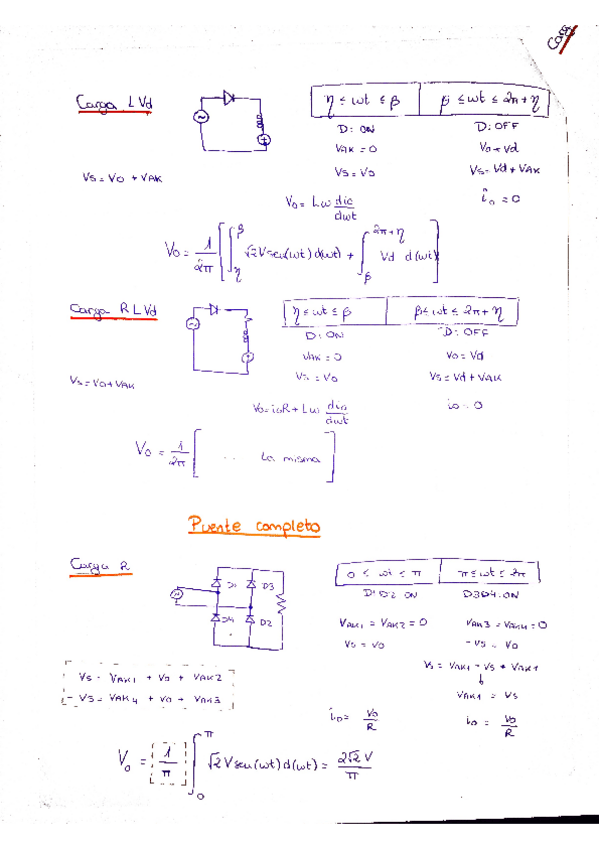 Carg
Carga L Vd
η ≤ wt ≤ β
β ≤ wt ≤ 2π + η
D: ON
D: OFF
VAK = 0
Vo = Vd
Vs = Vo + VAK
Vs = Vo
Vs = Vd + VAK
Vo = Lw dio/dwt
io = 0
Vo = 1/2π [ ∫_η^β √2 V sen(wt) d(wt) + ∫_β^{2π+η} Vd d(wt) ]
Carga R L Vd
η ≤ wt ≤ β
β ≤ wt ≤ 2π + η
D: ON
D: OFF
VAK = 0
Vo = Vd
Vs = Vo + VAK
Vs = Vo
Vs = Vd + VAK
Vo = ioR + Lw dio/dwt
io = 0
Vo = 1/2π [ ... La misma ]
Puente completo
Carga R
0 ≤ wt ≤ π
π ≤ wt ≤ 2π
D1 D3
D4 D2
D1D2 ON
D3D4: ON
VAK1 = VAK2 = 0
VAK3 = VAK4 = 0
Vs = Vo
-Vs = Vo
Vs = VAK1 + Vo + VAK2
-Vs = VAK4 + Vo + VAK3
Vs = VAK1 - Vs + VAK1
↓
VAK1 = Vs
io = Vo/R
io = Vo/R
Vo = 1/π ∫_0^π √2 V sen(wt) d(wt) = 2√2 V/π